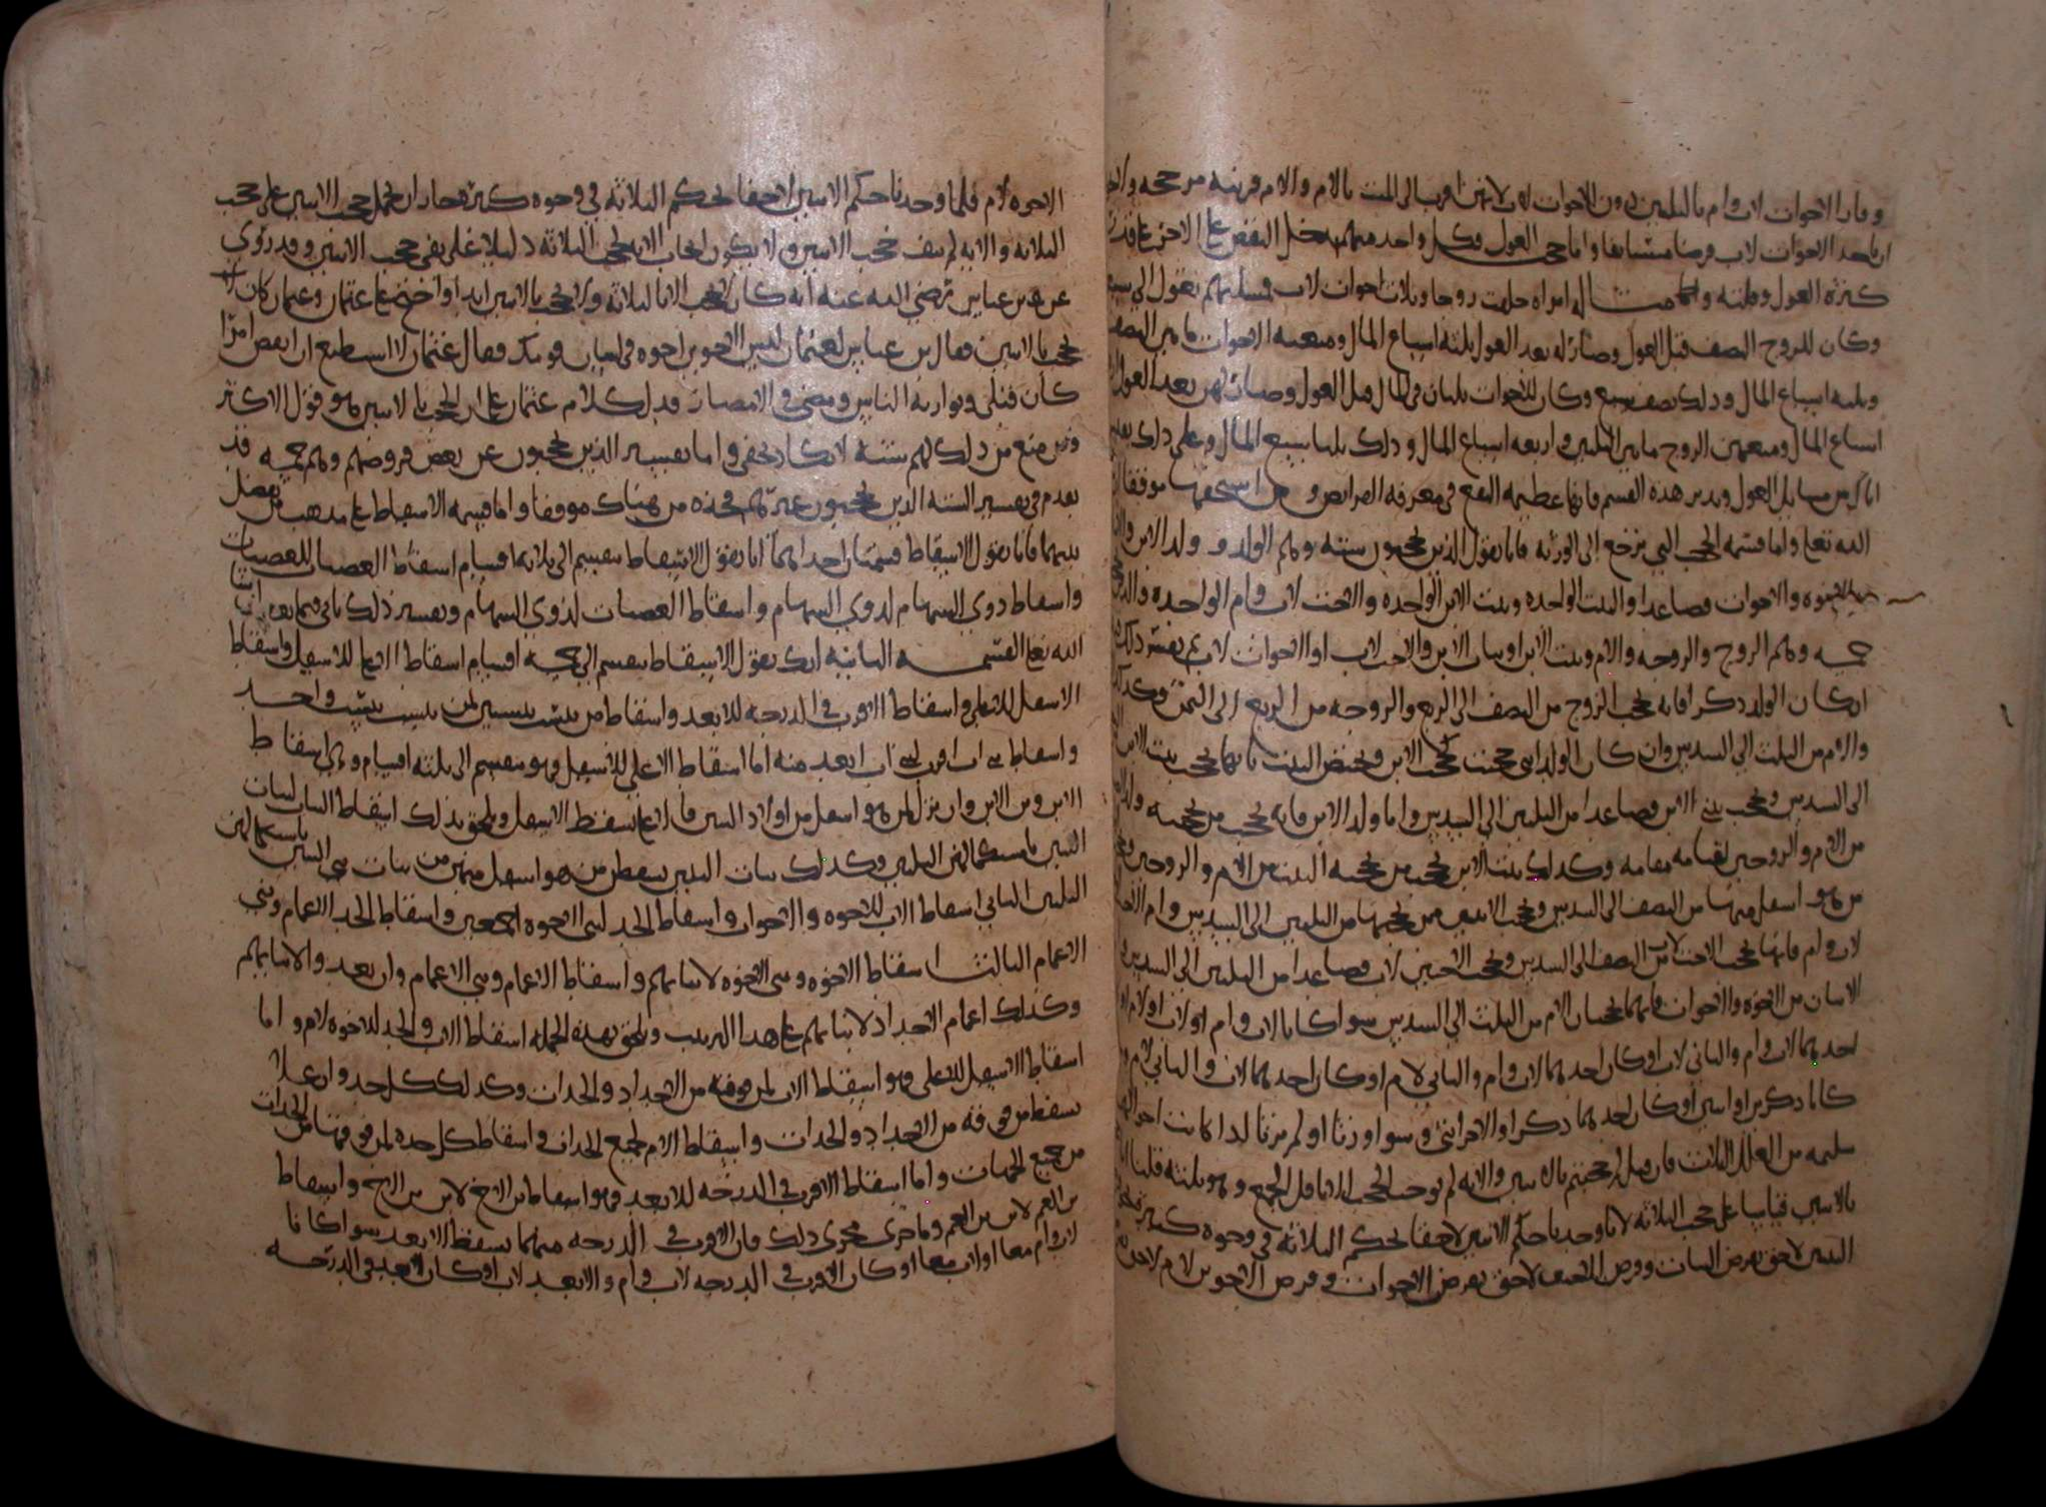 وفاز الاخوات لاب وام بالثلثين دون الاخوات لاب لانهن اقرب الى الميت بالام والام قرينه من حجبه
ان ياخذ الاخوات لاب فرضا مستانفا واما حجب العول فكل واحد منهم يدخل النقص على الاخر على قدر
كثرة العول وقلته مثاله امراه خلفت زوجا وثلاث اخوات لاب فمسلتهم تعول الى سبعه
وكان للزوج النصف قبل العول وصار له بعد العول ثلثه اسباع المال ومنعنه الاخوات ما بين النصف
وثلثه اسباع المال وذلك نصف سبع وكان للاخوات ثلثان في المال قبل العول وصار لهن بعد العول
اسباع المال ومنعهن الزوج ما بين الثلثين واربعه اسباع المال وذلك ثلثا سبع المال وعلى ذلك
من مسايل العول وتدبر هذه القسم فانها عظيمه النفع في معرفه الفرايض موفقا
الله تعالى واما قسمه الحجب التي ترجع الى الورثه فانا نقول الذين يحجبون سته وهم الولد وولد الابن
والاخوه والاخوات فصاعدا والبنت الواحده وبنت الابن الواحده والاخت لاب وام الواحده والذين
خمسه وهم الزوج والزوجه والام وبنت الابن او بنات الابن والاخت لاب او الاخوات لاب تفسير ذلك
ان كان الولد ذكرا فانه يحجب الزوج من النصف الى الربع والزوجه من الربع الى الثمن
والام من الثلث الى السدس وان كان الولد انثى حجبت كحجب الابن وتختص البنت بانها تحجب بنت الابن
الى السدس وتحجب بنتي الابن فصاعدا من الثلثين الى السدس واما ولد الابن فانه يحجب من يحجبه
من الام والزوجين لقيامه مقامه وكذلك بنت الابن تحجب من تحجبه البنت من الام والزوجين
من هو اسفل منها من النصف الى السدس وتحجب الاثنتين ممن تحتها من الثلثين الى السدس
لاب وام فانها تحجب الاخت لاب من النصف الى السدس وتحجب الاختين لاب فصاعدا من الثلثين الى السدس
الاثنان من الاخوه والاخوات فانهما يحجبان الام من الثلث الى السدس سوا كانا لاب وام او لاب او لام
احدهما لاب وام والثاني لاب او كان احدهما لاب وام والثاني لام او كان احدهما لاب والثاني لام
كانا ذكرين او انثيين او كان احدهما ذكرا والاخر انثى وسوا ورثا او لم يرثا اذا كانت احوالهم
سليمه من العلل الثلاث فان قيل لم حجبتم بالاثنين والايه لم توجب الحجب الا باقل الجمع وهو ثلثه قلنا
بالاثنين قياسا على حجب الثلاثه لانا وجدنا حكم الاثنين لاحقا بحكم الثلاثه في وجوه كثيره
البنتين لاحق بفرض البنات وفرض الاختين لاحق بفرض الاخوات وفرض الاخوين لام لاحق
الاخوه لام فلما وجدنا حكم الاثنين لاحقا بحكم الثلاثه في وجوه كثيره جاز ان يحمل حجب الاثنين على حجب
الثلاثه والايه لم تنف حجب الاثنين ولا يكون ايجاب الايه لحجب الثلاثه دليلا على نفي حجب الاثنين وقد روي
عن بن عباس رضي الله عنه انه كان لا يحجب الا بالثلاثه ولا يحجب بالاثنين ابدا واحتج على عثمان وعثمان كان
يحجب بالاثنين فقال بن عباس لعثمان ليس الاخوين اخوه في لسان قومك فقال عثمان لا استطيع ان انقض امرا
كان قبلي وتوارثه الناس ومضى في الامصار فدل كلام عثمان على ان الحجب بالاثنين هو قول الاكثر
ومن منع من ذلك فهم شذه لا يكاد يخفى واما تفسير الذين يحجبون عن بعض فروضهم وهم خمسه قد
تقدم في تفسير السته الذين يحجبون غيرهم فخذه من هناك موفقا واما قسمه الاسقاط على مذهب من يفصل
بينهما فانا نقول الاسقاط قسمتان احداهما انا نقول الاسقاط ينقسم الى ثلاثه اقسام اسقاط العصبات للعصبات
واسقاط ذوي السهام لذوي السهام واسقاط العصبات لذوي السهام وتفسير ذلك ياتي فيما بعد ان شا
الله تعالى القسمه الثانيه انك تقول الاسقاط ينقسم الى خمسه اقسام اسقاط الاعلى للاسفل واسقاط
الاسفل للاعلى واسقاط الاقرب في الدرجه للابعد واسقاط من ينتسب بنسبين لمن ينتسب بنسب واحد
واسقاط بني اب اقرب لبني اب ابعد منه اما اسقاط الاعلى للاسفل فهو ينقسم الى ثلثه اقسام وهي اسقاط
الابن وبن الابن وان نزل لمن هو اسفل من اولاد البنين فالاعلى يسقط الاسفل ويلحق بذلك اسقاط البنات لبنات
البنين باستكمالهن الثلثين وكذلك بنات البنين يسقطن من هو اسفل منهن من بنات بني البنين باستكمالهن
الثلثين الثاني اسقاط الاب للاخوه والاخوات واسقاط الجد لبني الاخوه اجمعين واسقاط الجد الاعمام وبني
الاعمام الثالث اسقاط الاخوه وبني الاخوه لابنائهم واسقاط الاعمام وبني الاعمام وان بعدوا لابنائهم
وكذلك اعمام الاجداد لابنائهم على هذا الترتيب ويلحق بهذه الجمله اسقاط الاب والجد للاخوه لام واما
اسقاط الاسفل للاعلى فهو اسقاط الاب لمن فوقه من الاجداد والجدات وكذلك كل جد وان علا
يسقط من فوقه من الاجداد والجدات واسقاط الام لجميع الجدات واسقاط كل جده لمن فوقها من الجدات
من جميع الجهات واما اسقاط الاقرب في الدرجه للابعد فهو اسقاط بن الاخ لابن بن الاخ واسقاط
بن العم لابن بن العم وما جرى مجرى ذلك فان الاقرب في الدرجه منهما يسقط الابعد سوا كانا
لاب وام معا او لاب معا او كان الاقرب في الدرجه لاب وام والابعد لاب او كان الابعد في الدرجه